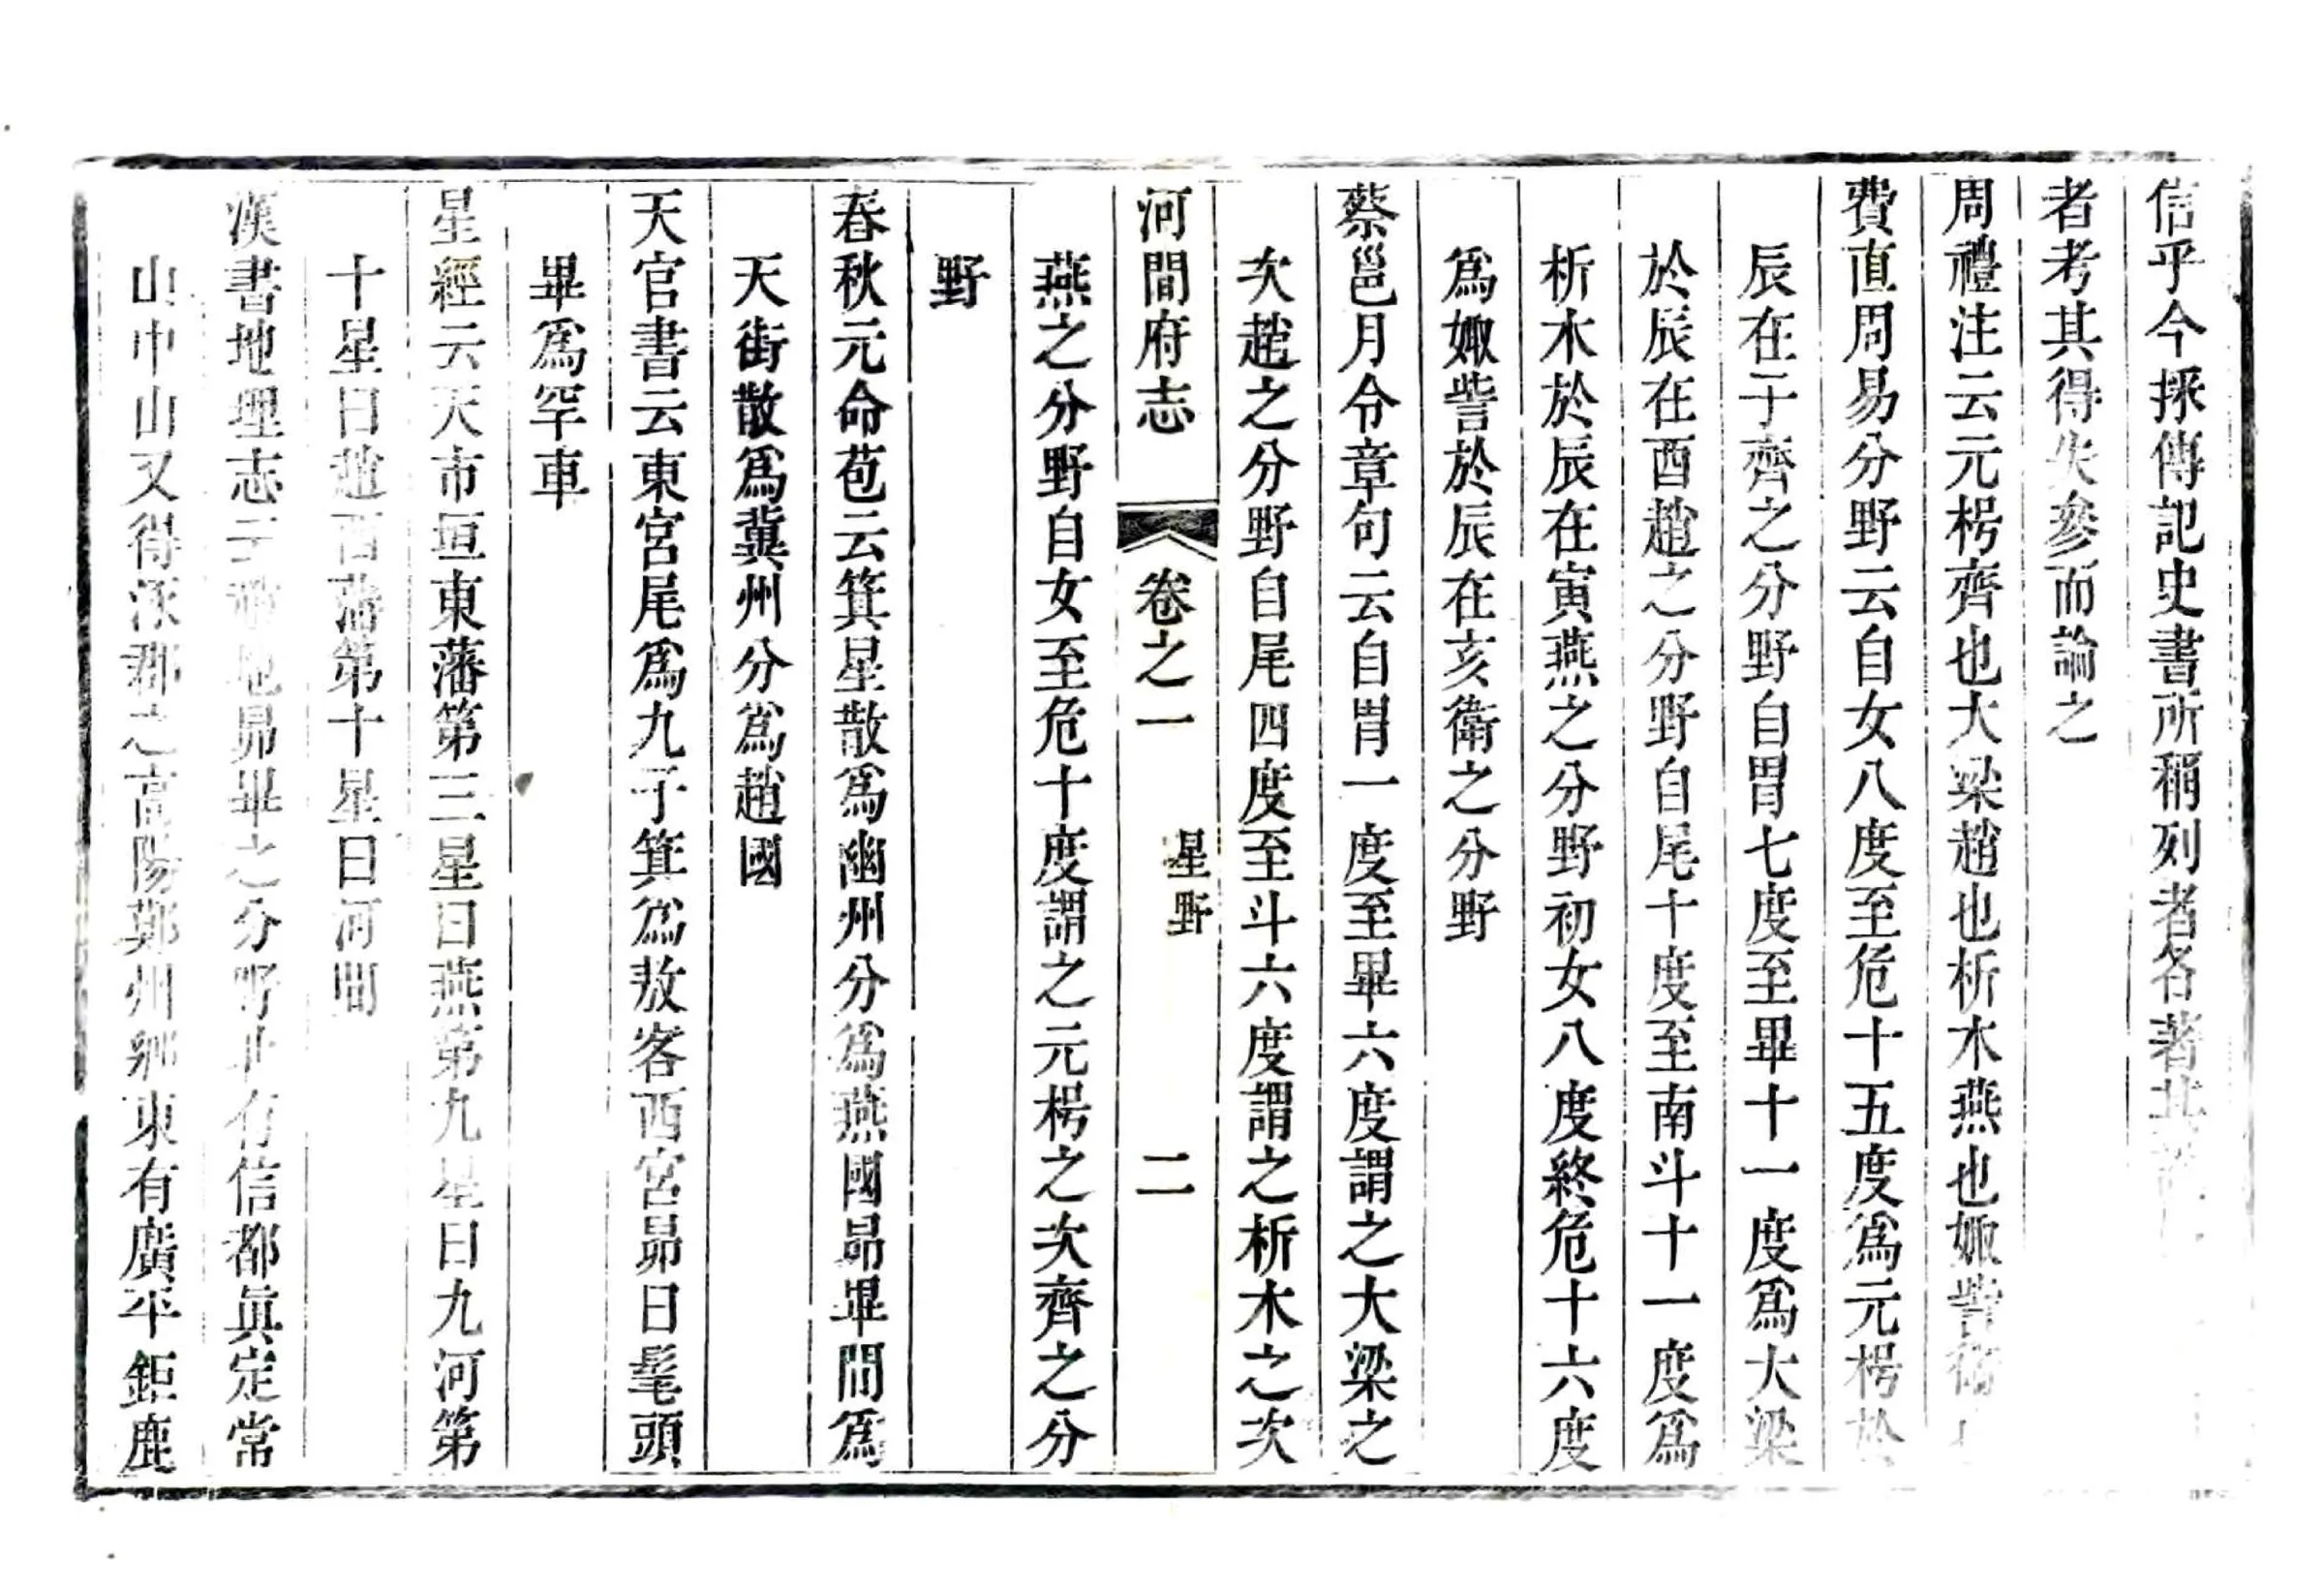 信乎今採傳記史書所稱列者各著其
者考其得失參而論之
周禮注云元枵齊也大梁趙也析木燕也娵訾衛也
費直周易分野云自女八度至危十五度爲元枵於
辰在子齊之分野自胃七度至畢十一度爲大梁
於辰在酉趙之分野自尾十度至南斗十一度爲
析木於辰在寅燕之分野初女八度終危十六度
爲娵訾於辰在亥衛之分野
蔡邕月令章句云自胃一度至畢六度謂之大梁之
次趙之分野自尾四度至斗六度謂之析木之次
河間府志 卷之一 星野 二
燕之分野自女至危十度謂之元枵之次齊之分
野
春秋元命苞云箕星散爲幽州分爲燕國昴畢間爲
天街散爲冀州分爲趙國
天官書云東宮尾爲九子箕爲敖客西宮昴曰髦頭
畢爲罕車
星經云天市垣東藩第三星曰燕第九星曰九河第
十星曰趙西藩第十星曰河間
漢書地理志云趙地昴畢之分野北有信都眞定常
山中山又得涿郡之高陽鄚州鄉東有廣平鉅鹿